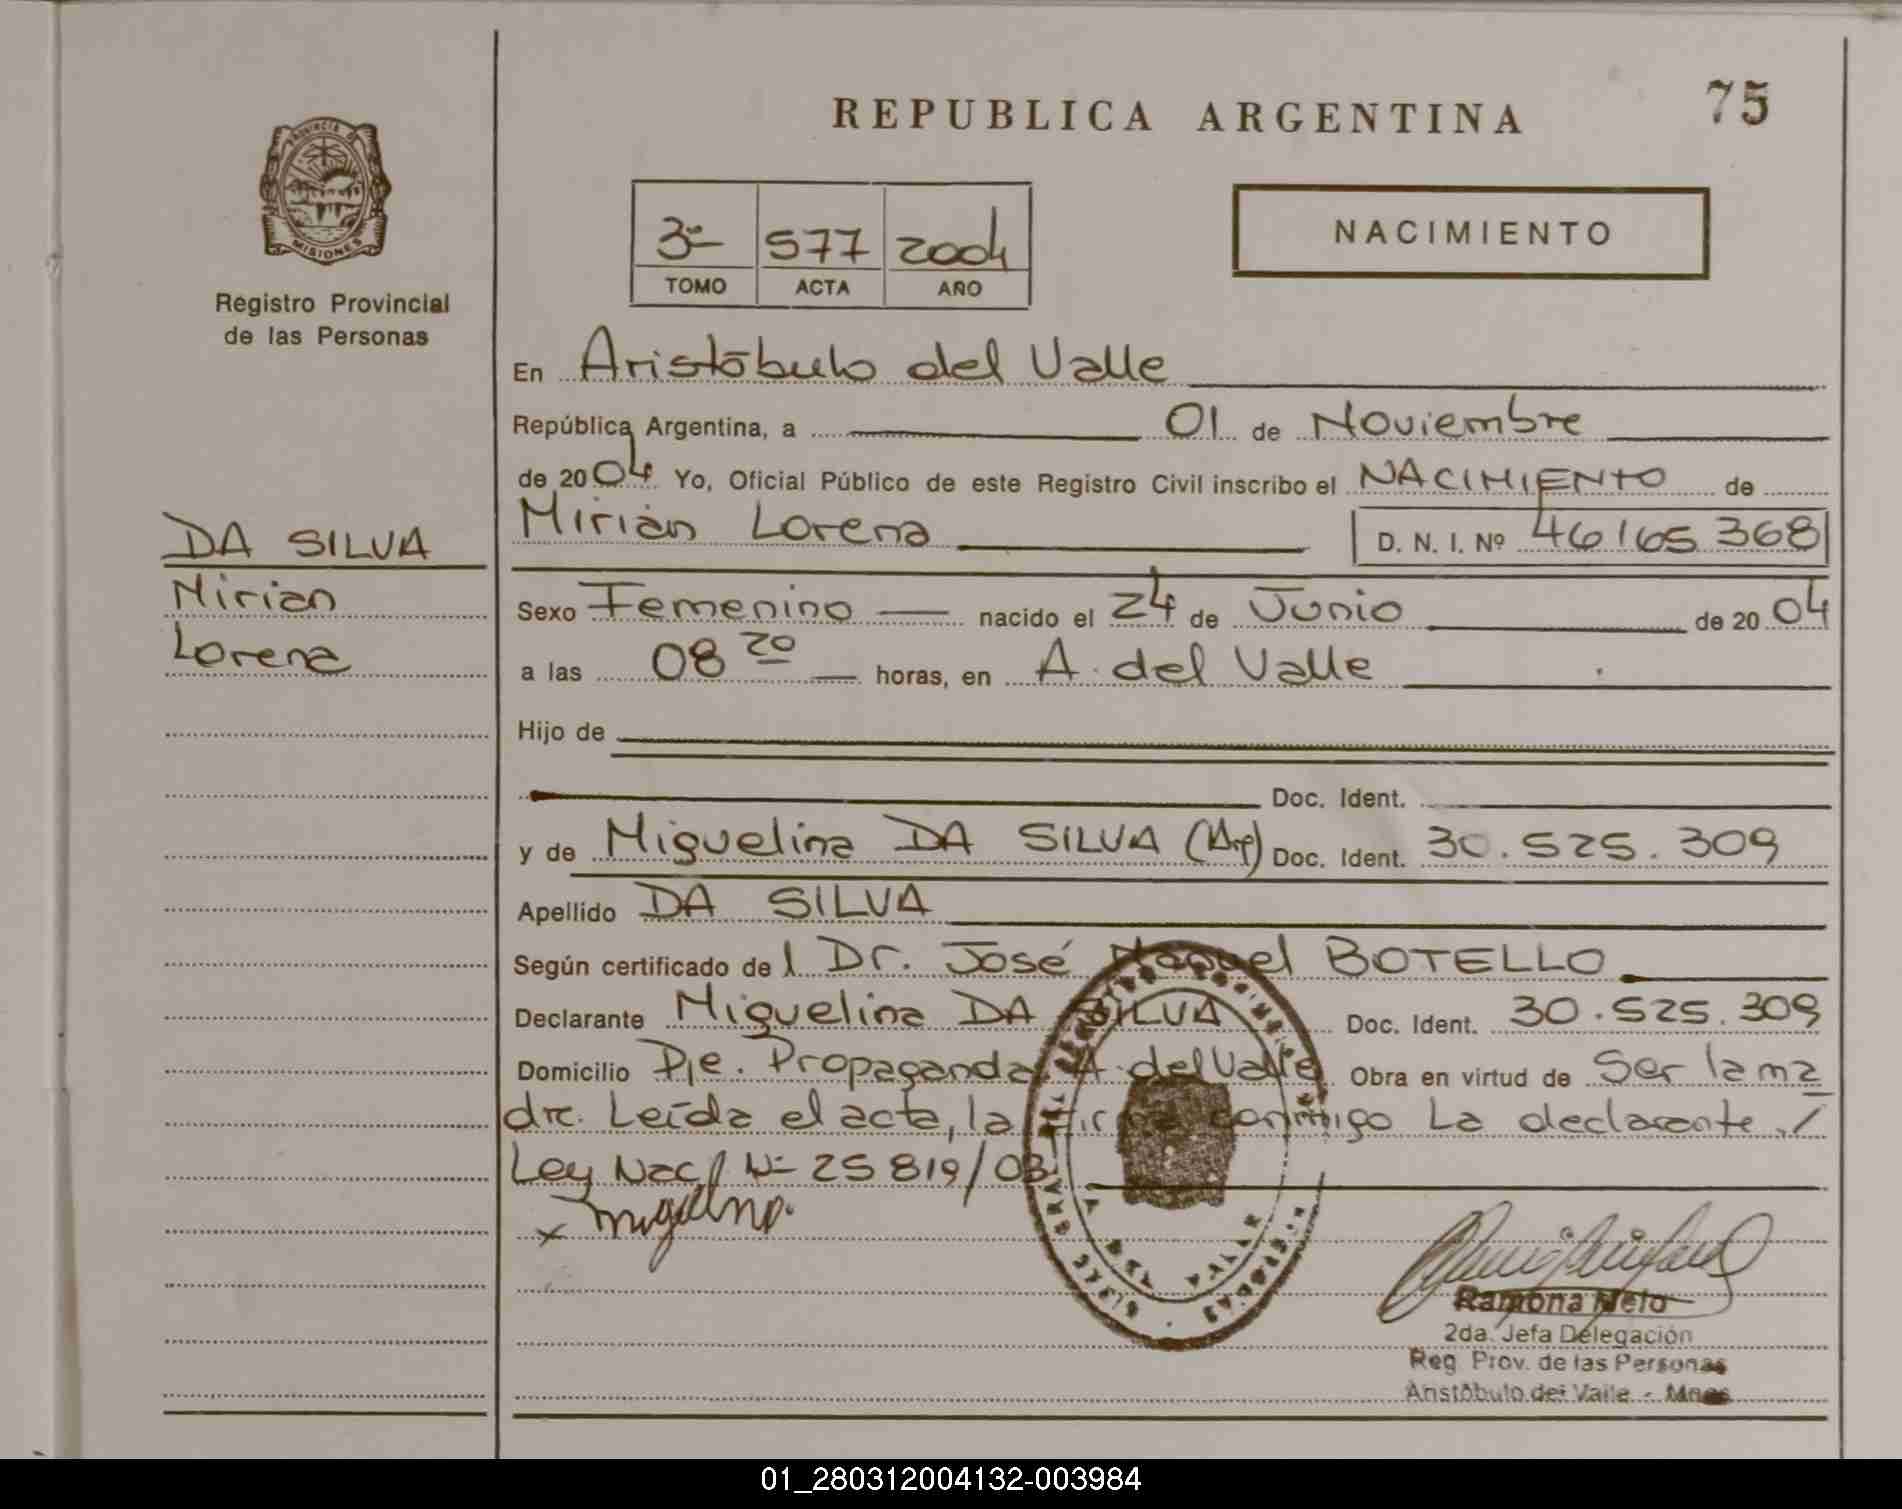 75
REPUBLICA ARGENTINA
PROVINCIA DE
MISIONES
Registro Provincial
de las Personas
3º 577 2004
TOMO ACTA AÑO
NACIMIENTO
En Aristóbulo del Valle
República Argentina, a 01 de Noviembre
de 2004 Yo, Oficial Público de este Registro Civil inscribo el NACIMIENTO de
Mirian Lorena D. N. I. Nº 46165368
DA SILVA
Mirian
Lorena
Sexo Femenino nacido el 24 de Junio de 2004
a las 08 20 horas, en A. del Valle
Hijo de
Doc. Ident.
y de Miguelina DA SILVA (Arg) Doc. Ident. 30.525.309
Apellido DA SILVA
Según certificado del Dr. José Manuel BOTELLO
Declarante Miguelina DA SILVA Doc. Ident. 30.525.309
Domicilio Pje. Propaganda A. del Valle Obra en virtud de Ser la ma
dre. Leída el acta, la firma conmigo La declarante. /
Ley Nac. Nº 25819/03
Ramona Melo
2da. Jefa Delegación
Reg. Prov. de las Personas
Aristóbulo del Valle - Mnes
01_280312004132-003984